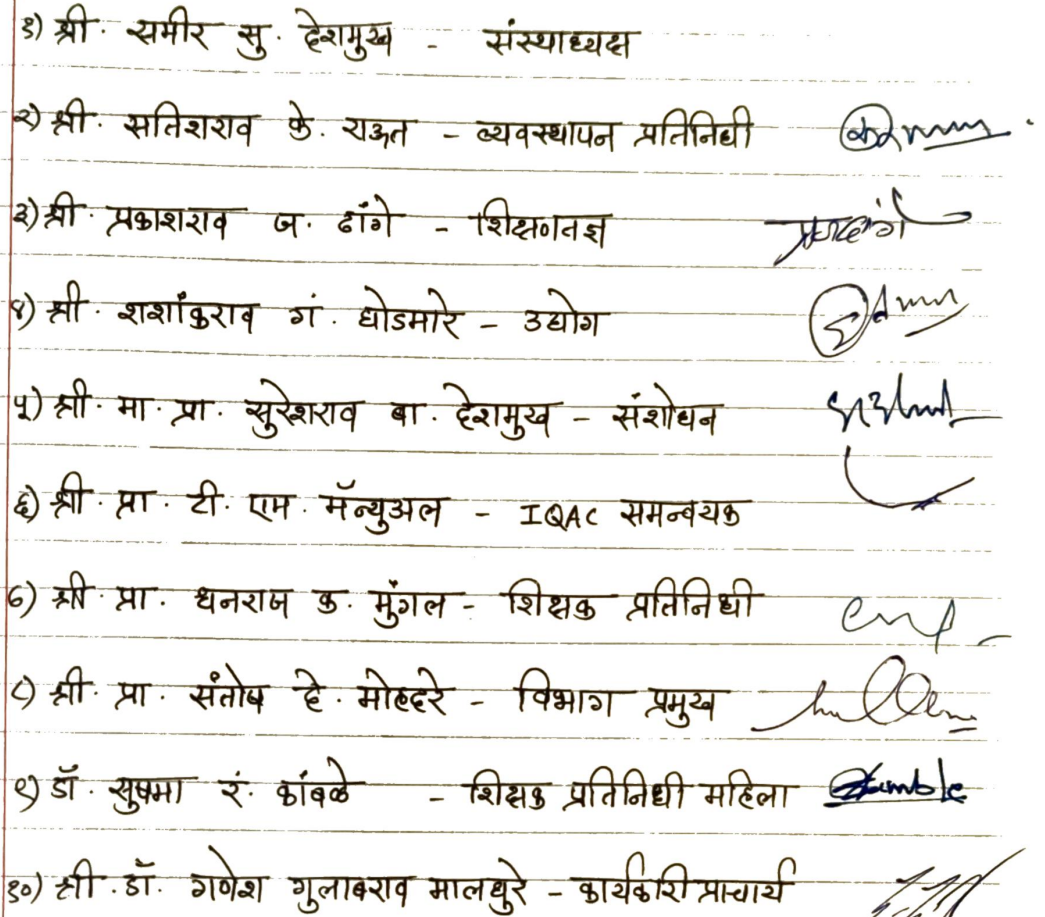 १) श्री. समीर सु. देशमुख - संस्थाध्यक्ष
२) श्री. सतिशराव के. राऊत - व्यवस्थापन प्रतिनिधी
३) श्री. प्रकाशराव ज. ढांगे - शिक्षणतज्ञ
४) श्री. शशांकराव गं. घोडमारे - उद्योग
५) श्री. मा. प्रा. सुरेशराव बा. देशमुख - संशोधन
६) श्री. प्रा. टी. एम. मॅन्युअल - IQAC समन्वयक
७) श्री. प्रा. धनराज क. मुंगल - शिक्षक प्रतिनिधी
८) श्री. प्रा. संतोष हे. मोहदरे - विभाग प्रमुख
९) डॉ. सुषमा रं. कांबळे - शिक्षक प्रतिनिधी महिला
१०) श्री. डॉ. गणेश गुलाबराव मालधुरे - कार्यकारि प्राचार्य